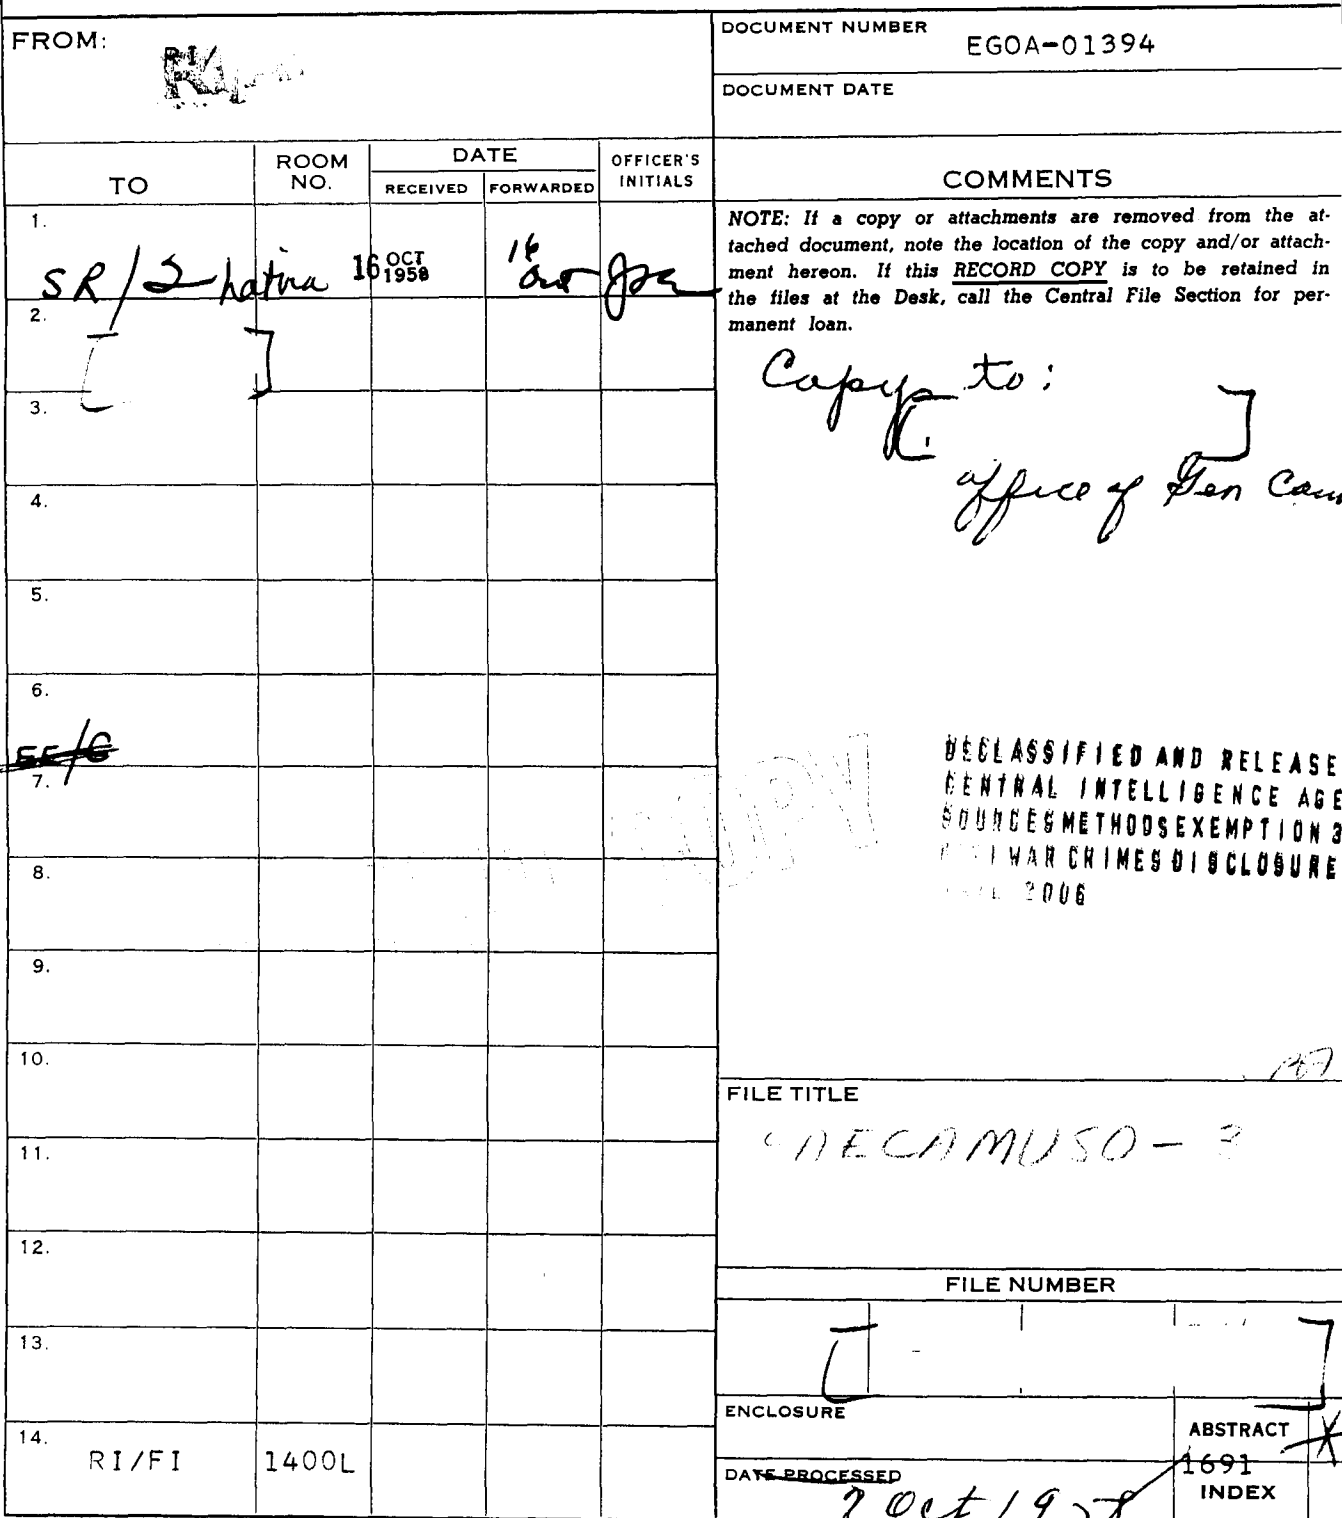 FROM:
RI/
DOCUMENT NUMBER
EGOA-01394
DOCUMENT DATE
TO
ROOM NO.
DATE
RECEIVED
FORWARDED
OFFICER'S INITIALS
COMMENTS
1.
SR/2 Latvia
16 OCT 1958
16 Oct
NOTE: If a copy or attachments are removed from the at-
tached document, note the location of the copy and/or attach-
ment hereon. If this RECORD COPY is to be retained in
the files at the Desk, call the Central File Section for per-
manent loan.
2.
[ ]
3.
Copy to:
[ ]
office of Gen Coun
4.
5.
6.
EE/G
7.
COPY
DECLASSIFIED AND RELEASE
CENTRAL INTELLIGENCE AGE
SOURCES METHODS EXEMPTION 3
WAR CRIMES DISCLOSURE
2006
8.
9.
10.
11.
12.
13.
FILE TITLE
AECAMUSO-3
FILE NUMBER
[ ]
ENCLOSURE
ABSTRACT
14.
RI/FI
1400L
DATE PROCESSED
1691
INDEX
Oct 1958